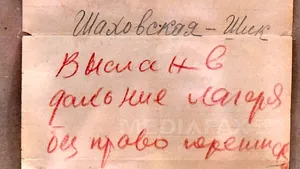 Шаховская - Шик
Выслан в
дальние лагеря
без право переписк
MEDIAFAX